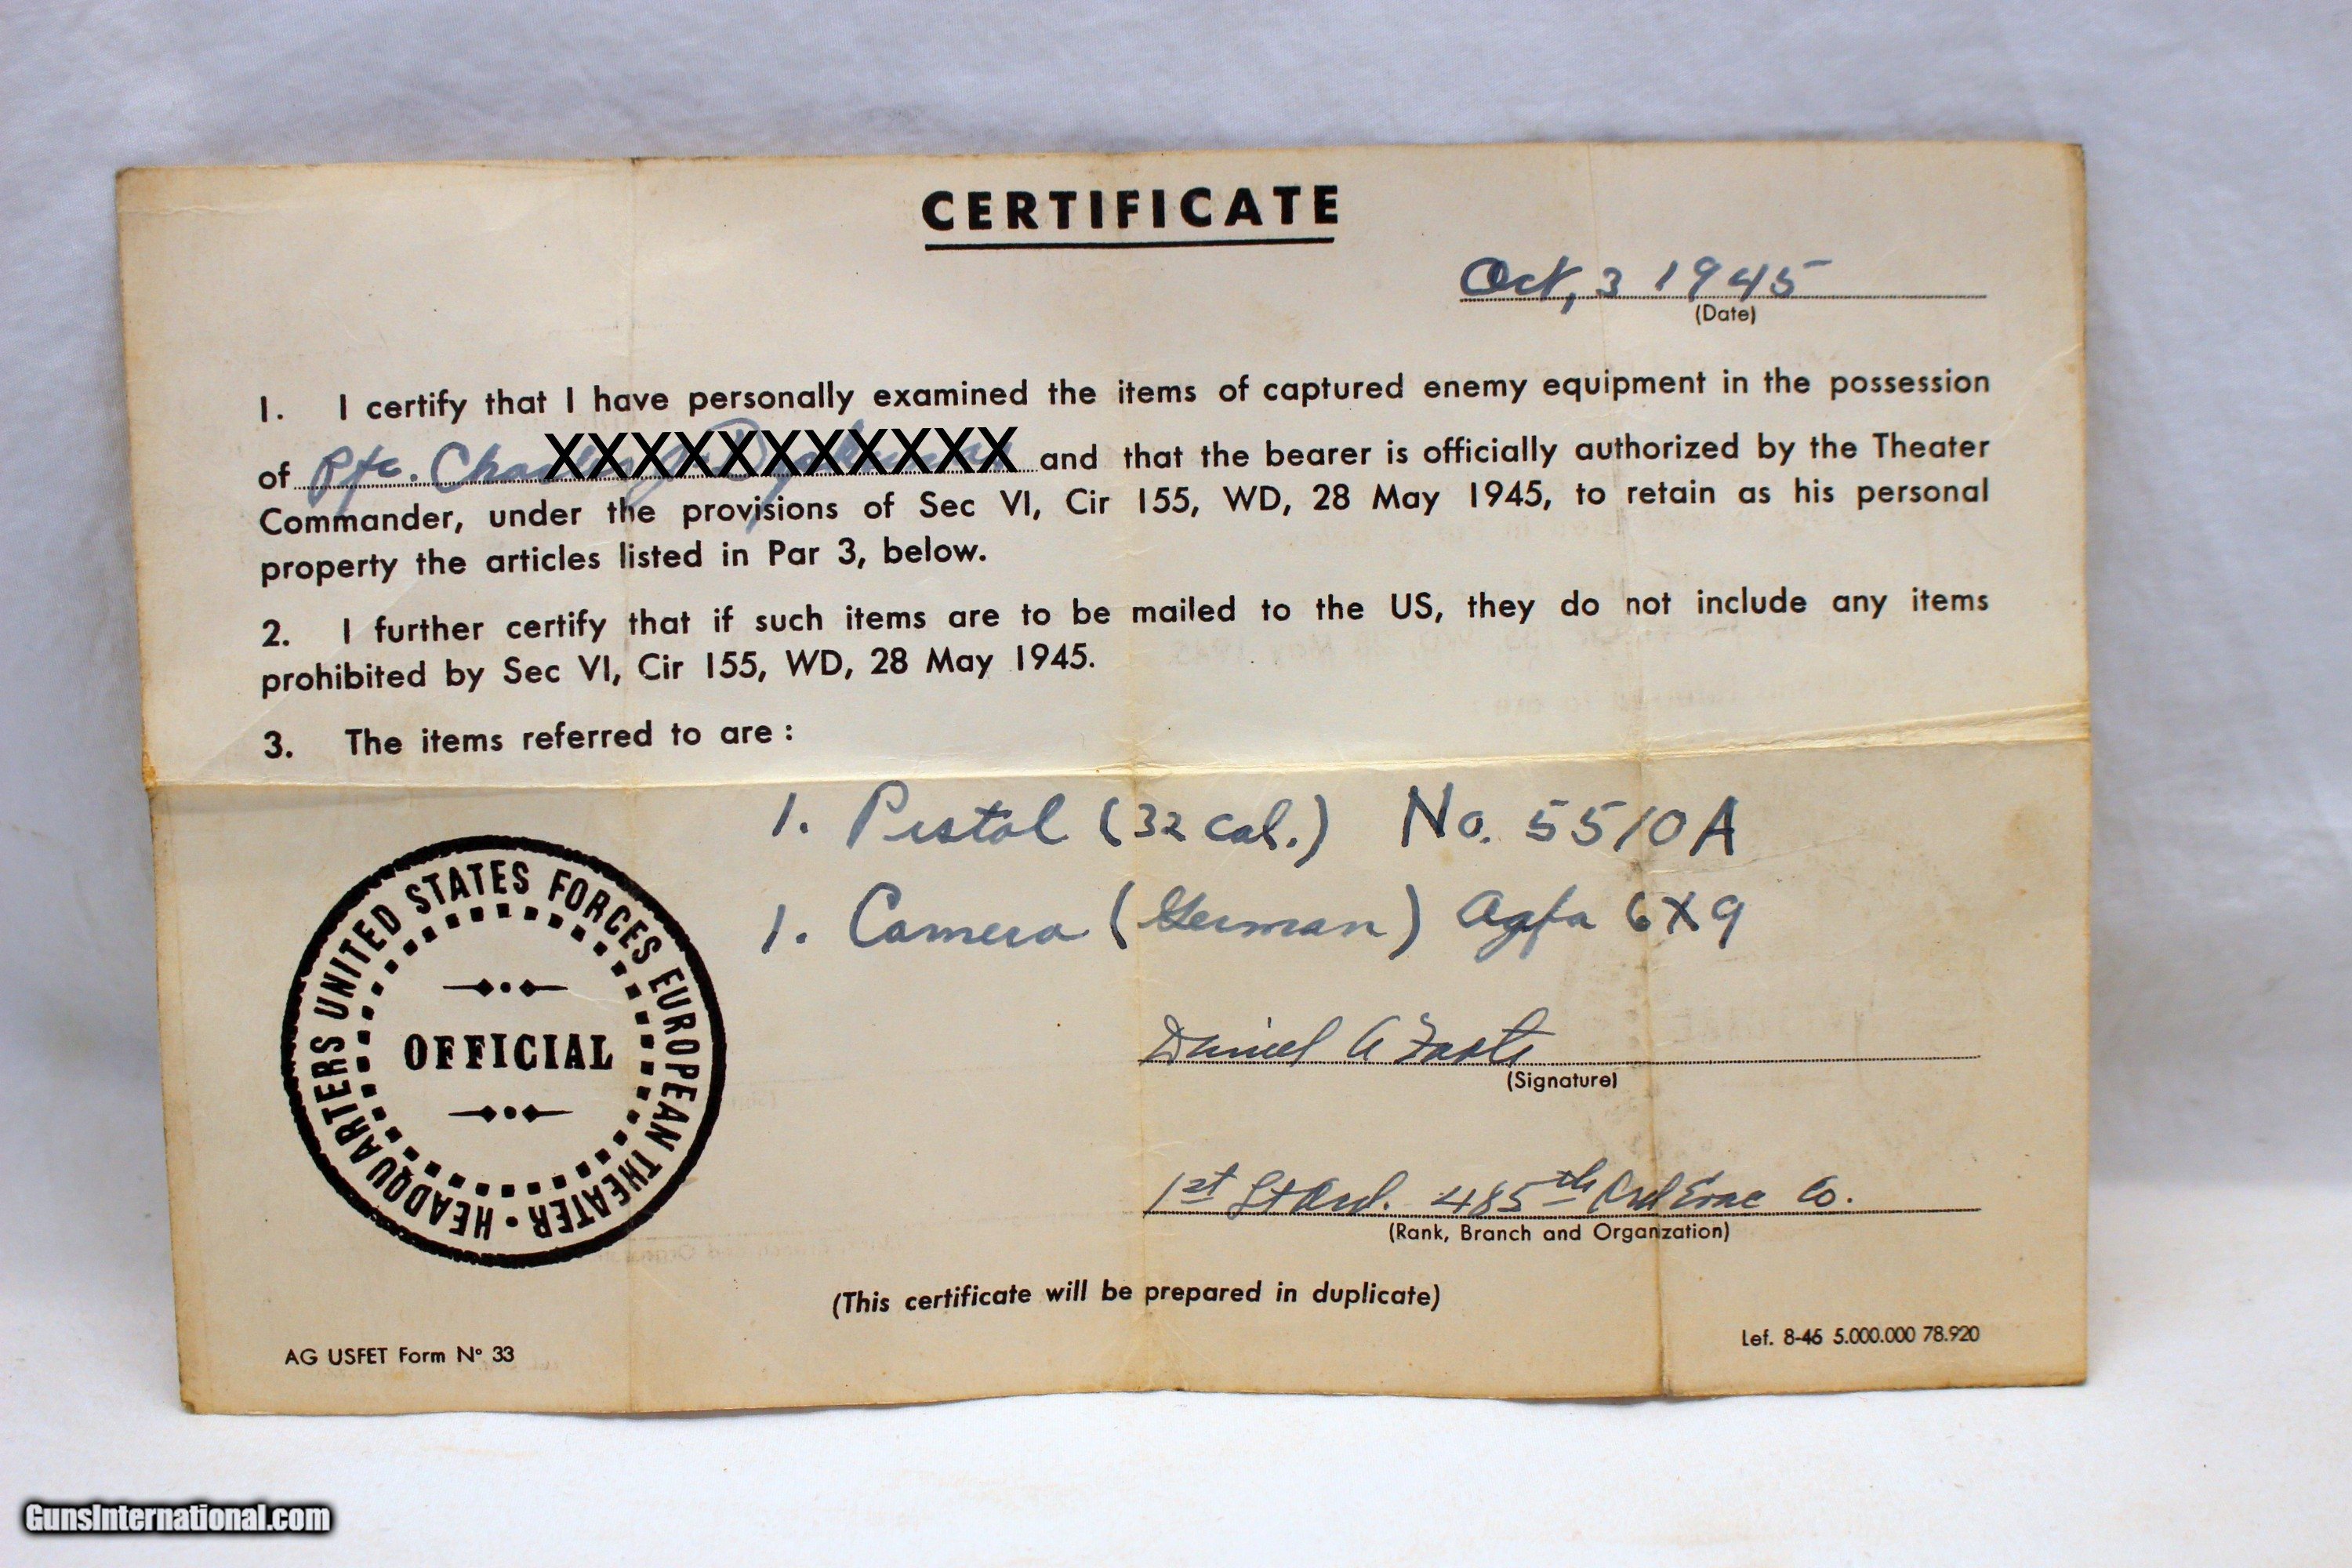 CERTIFICATE
Oct, 3 1945
(Date)
1. I certify that I have personally examined the items of captured enemy equipment in the possession
of Pfc. XXXXXXXXXXX and that the bearer is officially authorized by the Theater
Commander, under the provisions of Sec VI, Cir 155, WD, 28 May 1945, to retain as his personal
property the articles listed in Par 3, below.
2. I further certify that if such items are to be mailed to the US, they do not include any items
prohibited by Sec VI, Cir 155, WD, 28 May 1945.
3. The items referred to are :
1. Pistol (32 cal.) No. 5510A
1. Camera (German) Agfa 6X9
HEADQUARTERS UNITED STATES FORCES EUROPEAN THEATER •
OFFICIAL
Daniel A
(Signature)
1st Lt Ord. 485th Evac Co.
(Rank, Branch and Organzation)
(This certificate will be prepared in duplicate)
AG USFET Form Nº 33
Lef. 8-45 5.000.000 78.920
GunsInternational.com